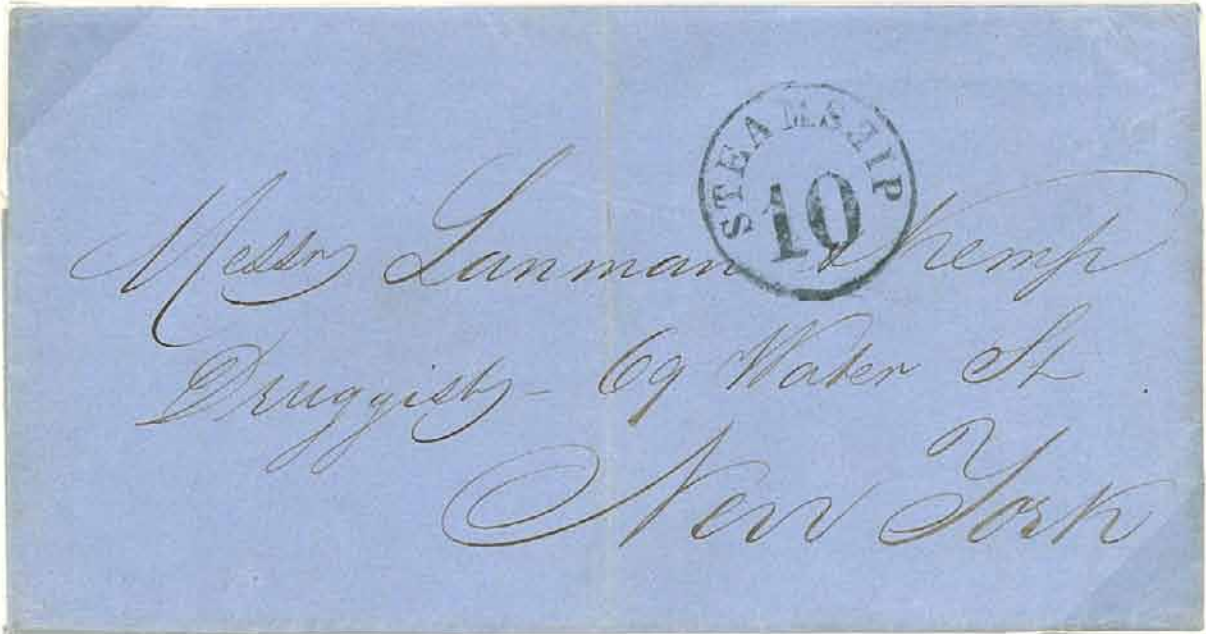 STEAMSHIP
10
Messrs Lanman & Kemp
Druggists - 69 Water St
New York